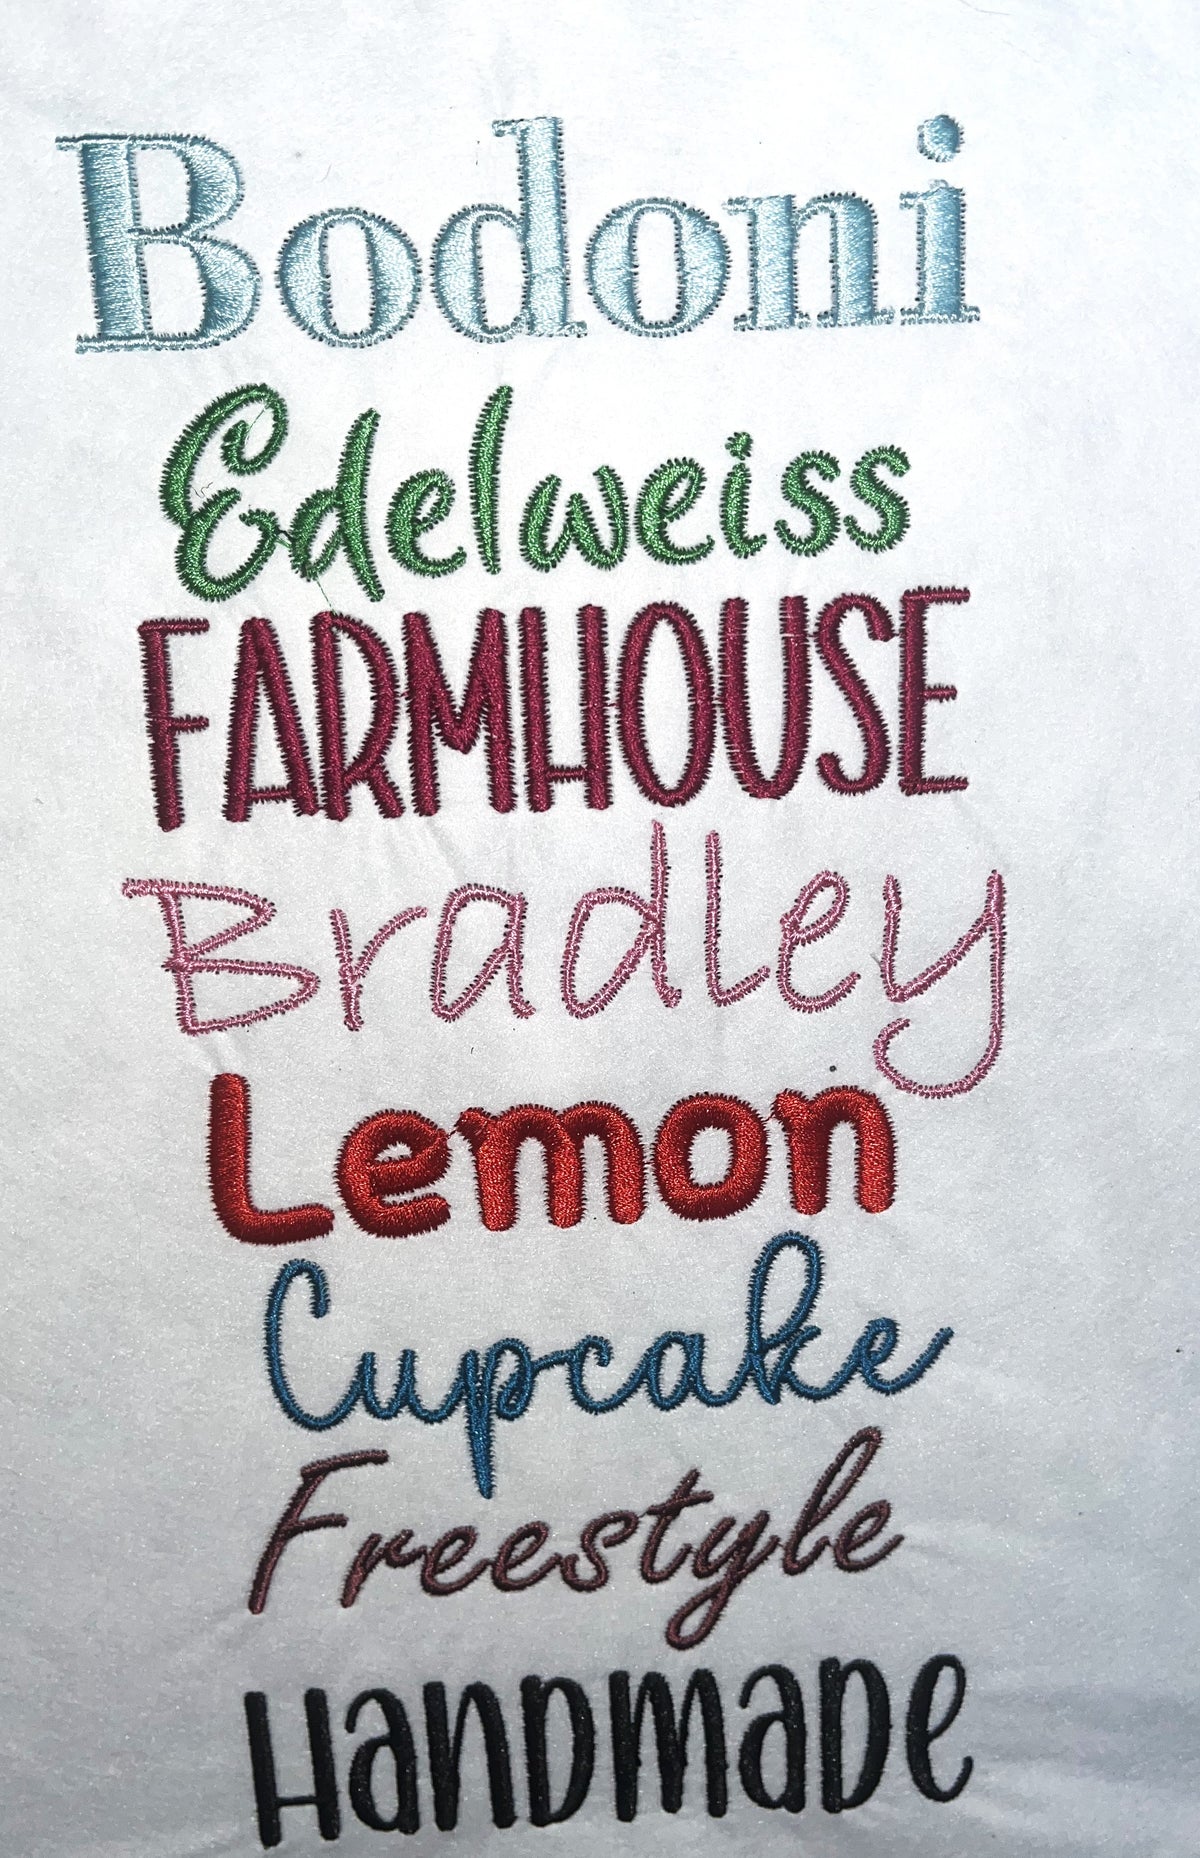 Bodoni
Edelweiss
FARMHOUSE
Bradley
Lemon
Cupcake
Freestyle
HanDmaDe